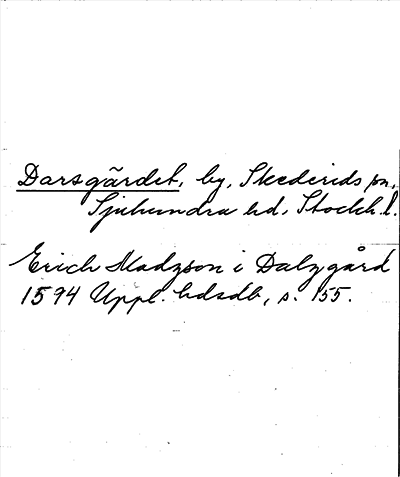 Darsgärdet, by, Skederids sn,
Sjuhundra hd, Stockh. l.
Erich Madzson i Dalzgård
1594 Uppl. hdsdb, s. 155.